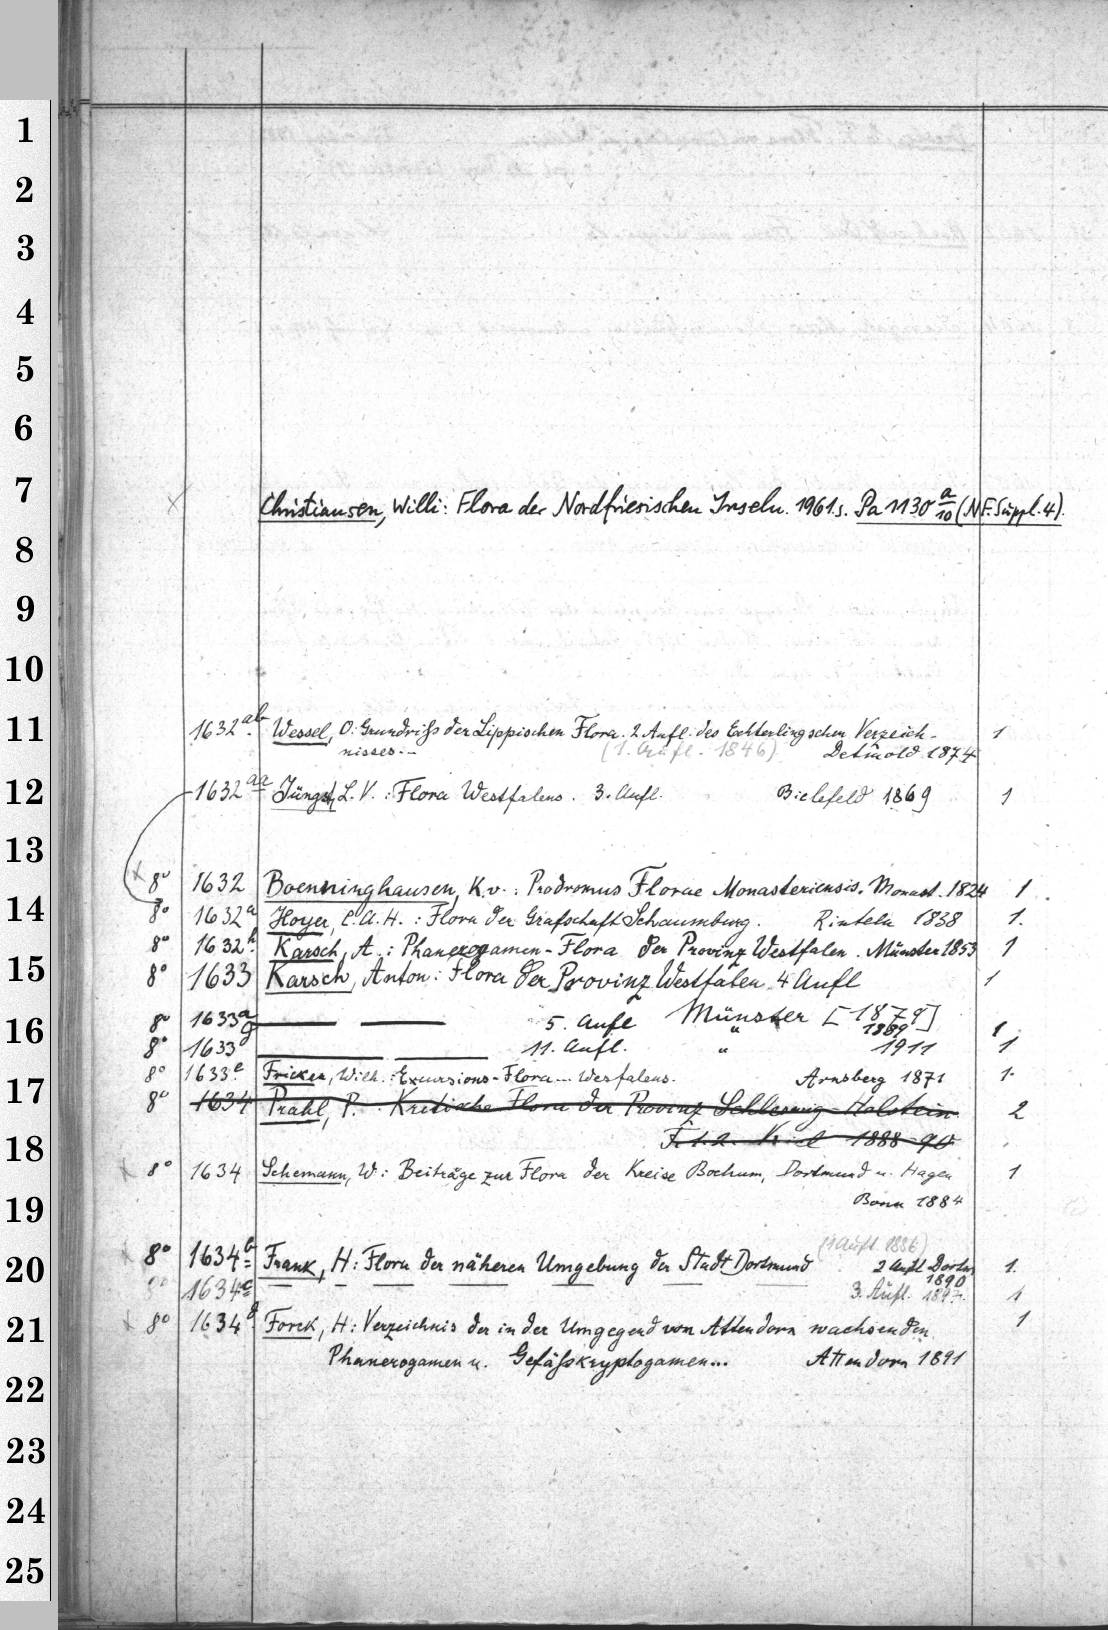 1
2
3
4
5
6
7
Christiansen, Willi: Flora der Nordfriesischen Inseln. 1961 s. Pa 1130 a/10 (N F. Suppl. 4).
8
9
10
11
1632 ab. Wessel, O: Grundriß der Lippischen Flora. 2 Aufl. des Echterlingschen Verzeich- 1
nisses... (1. Aufl. 1846) Detmold 1874
12
1632 aa Jüngst, L. V.: Flora Westfalens. 3. Aufl. Bielefeld 1869 1
13
8° 1632 Boenninghausen, K. v.: Prodromus Florae Monasteriensis. Monast. 1824 1
14
8° 1632 a Hoyer, C. A. H.: Flora der Grafschaft Schaumburg. Rinteln 1838 1.
8° 1632 b Karsch, A.: Phanerogamen-Flora der Provinz Westfalen. Münster 1853 1
15
8° 1633 Karsch, Anton: Flora der Provinz Westfalen 4 Aufl 1
Münster [1879]
16
8° 1633 a 5. Aufl " 1889 1
8° 1633 g 11. Aufl. " 1911 1
8° 1633 e Fricken, Wilh.: Excursions-Flora... Westfalens. Arnsberg 1871 1.
17
8° 1634 Prahl, P. Kritische Flora der Provinz Schleswig-Holstein 2
T. 1. 2. Kiel 1888-90
18
8° 1634 Schemann, W: Beiträge zur Flora der Kreise Bochum, Dortmund u. Hagen 1
Bonn 1884
19
(1 Aufl. 1886)
8° 1634 b Frank, H: Flora der näheren Umgebung der Stadt Dortmund 2 Aufl Dortm 1.
1890
20
8° 1634 c 3. Aufl. 1897. 1
21
8° 1634 d Forck, H: Verzeichnis der in der Umgegend von Attendorn wachsenden 1
Phanerogamen u. Gefäßkryptogamen... Attendorn 1891
22
23
24
25